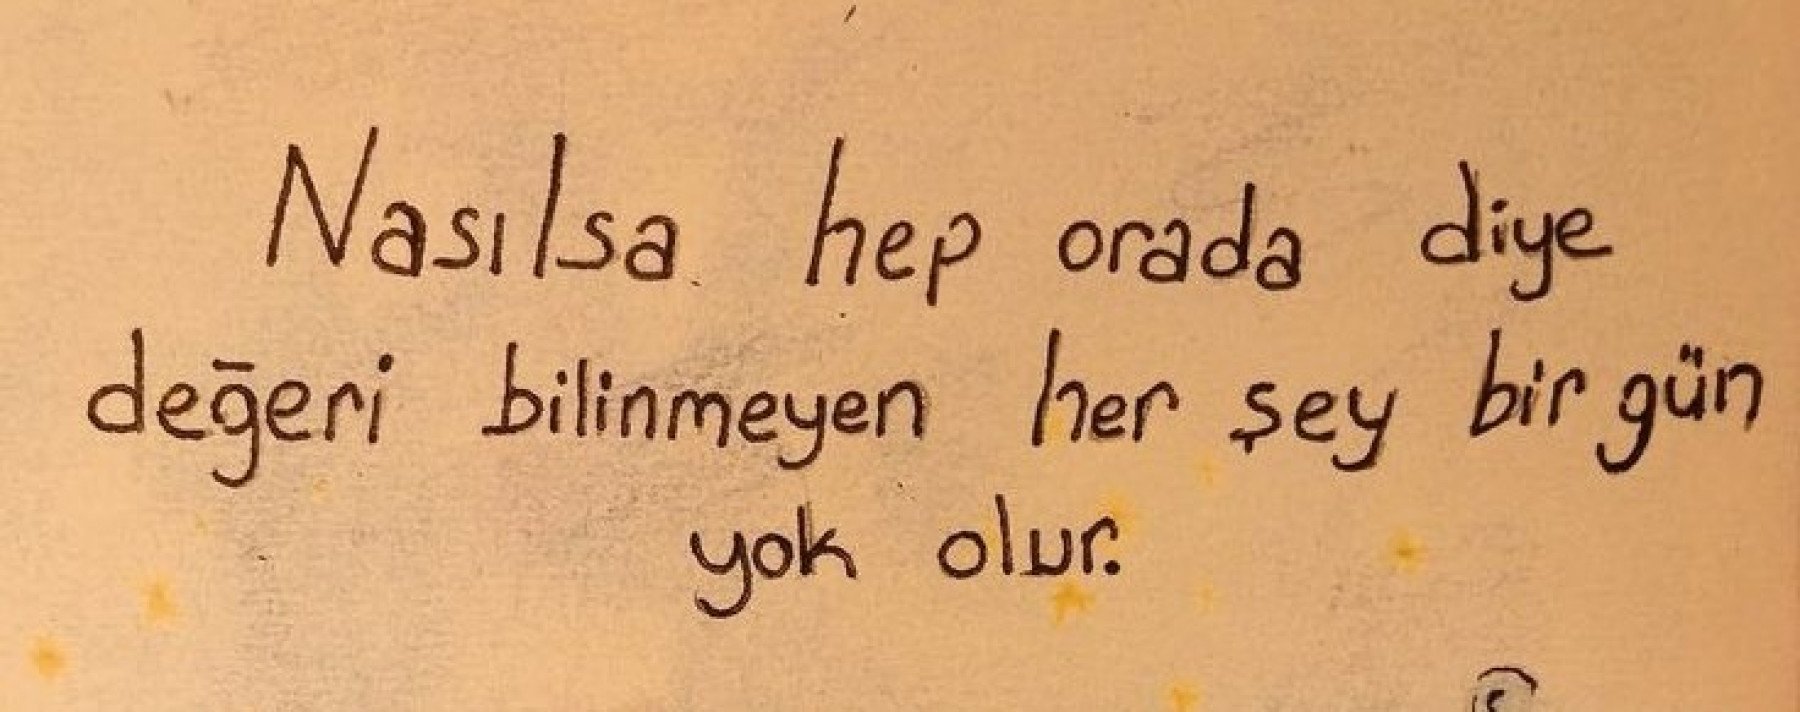 Nasılsa hep orada diye
değeri bilinmeyen her şey bir gün
yok olur.